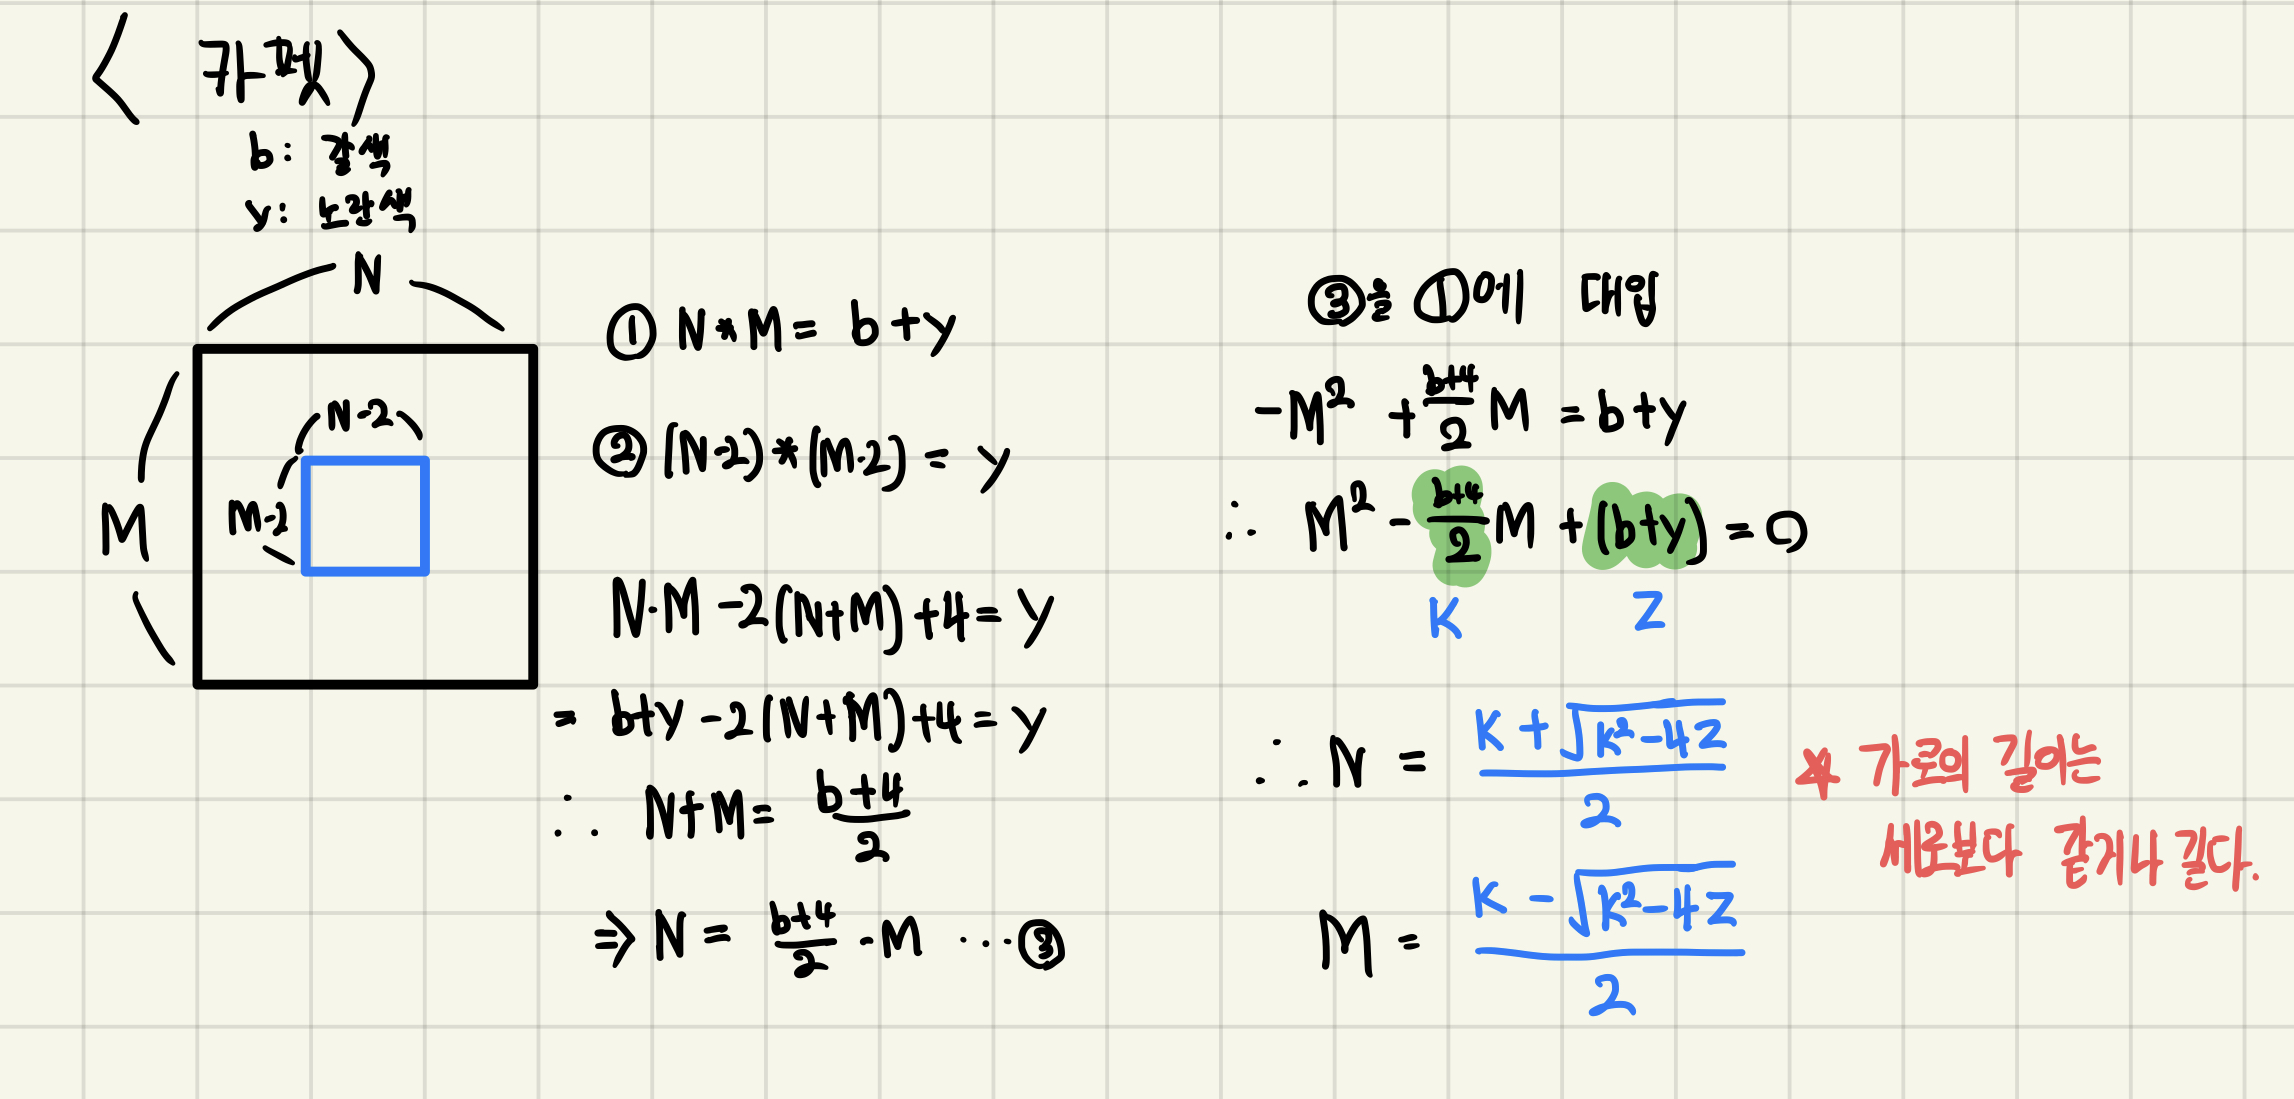 < 카펫 >
b: 갈색
y: 노란색
N
M
N-2
M-2
① N * M = b + y
② (N-2) * (M-2) = y
N·M -2(N+M) +4 = y
= b+y -2(N+M) +4 = y
∴ N+M = \frac{b+4}{2}
⇒ N = \frac{b+4}{2} - M ··· ③
③을 ①에 대입
-M² + \frac{b+4}{2} M = b+y
∴ M² - \frac{b+4}{2} M + (b+y) = 0
K Z
∴ N = \frac{K + \sqrt{K²-4Z}}{2}
M = \frac{K - \sqrt{K²-4Z}}{2}
★ 가로의 길이는
세로보다 같거나 길다.